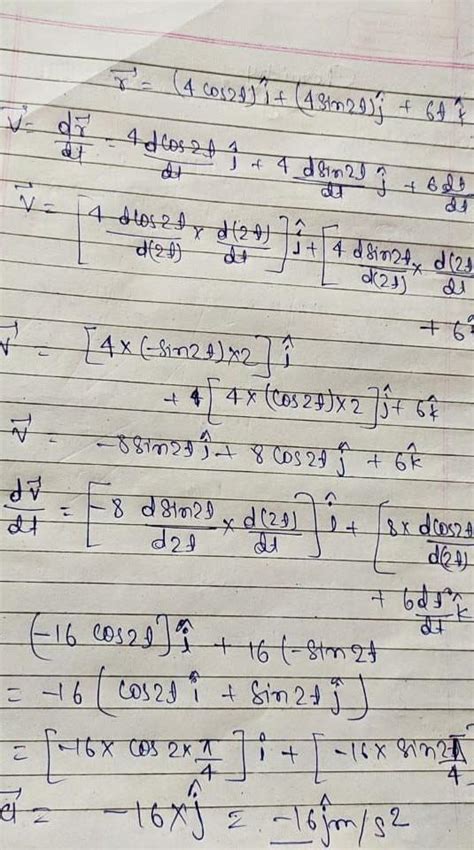 r⃗ = (4 cos2t) î + (4 sin2t) ĵ + 6t k̂
V⃗ = dr⃗/dt = 4 dcos2t/dt ĵ + 4 dsin2t/dt ĵ + 6dt/dt
V⃗ = [4 dcos2t/d(2t) × d(2t)/dt] ĵ + [4 dsin2t/d(2t) × d(2t/dt
+ 6k̂
V⃗ = [4×(-sin2t)×2] ĵ
+ 4[4×(cos2t)×2] ĵ + 6k̂
V⃗ = -8sin2t ĵ + 8cos2t ĵ + 6k̂
dV⃗/dt = [-8 dsin2t/d2t × d(2t)/dt] î + [8× dcos2t/d(2t)
+ 6dt°/dt k̂
(-16 cos2t] ĵ + 16(-sin2t
= -16(cos2t î + sin2t ĵ)
= [-16× cos 2× π/4] i + [-16× sin2π/4
a⃗ = -16×ĵ = -16ĵm/s²